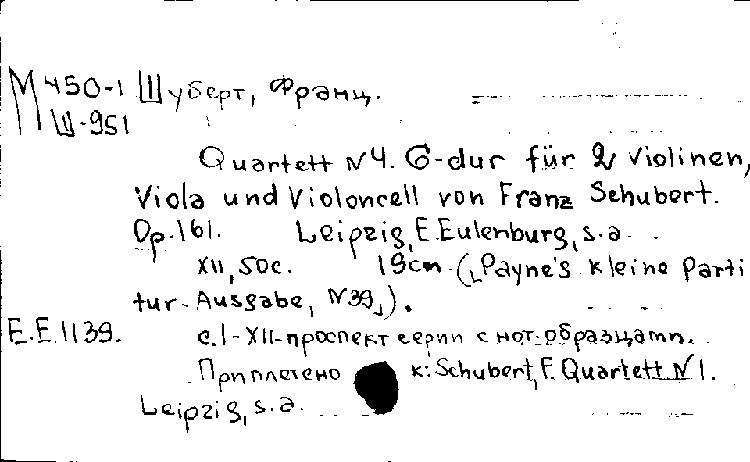 М 450-1 Шуберт, Франц.
Ш-951
Quartett N 4. G-dur für 2 Violinen,
Viola und Violoncell von Franz Schubert.
Op. 161. Leipzig, E. Eulenburg, s. a.
XII, 50 c. 19 cm. („Payne's kleine Parti
tur-Ausgabe, N 39„).
E.E. 1139. c. I-XII-проспект серии с нот. образцами.
Приплетено к: Schubert, F. Quartett N 1.
Leipzig, s. a.